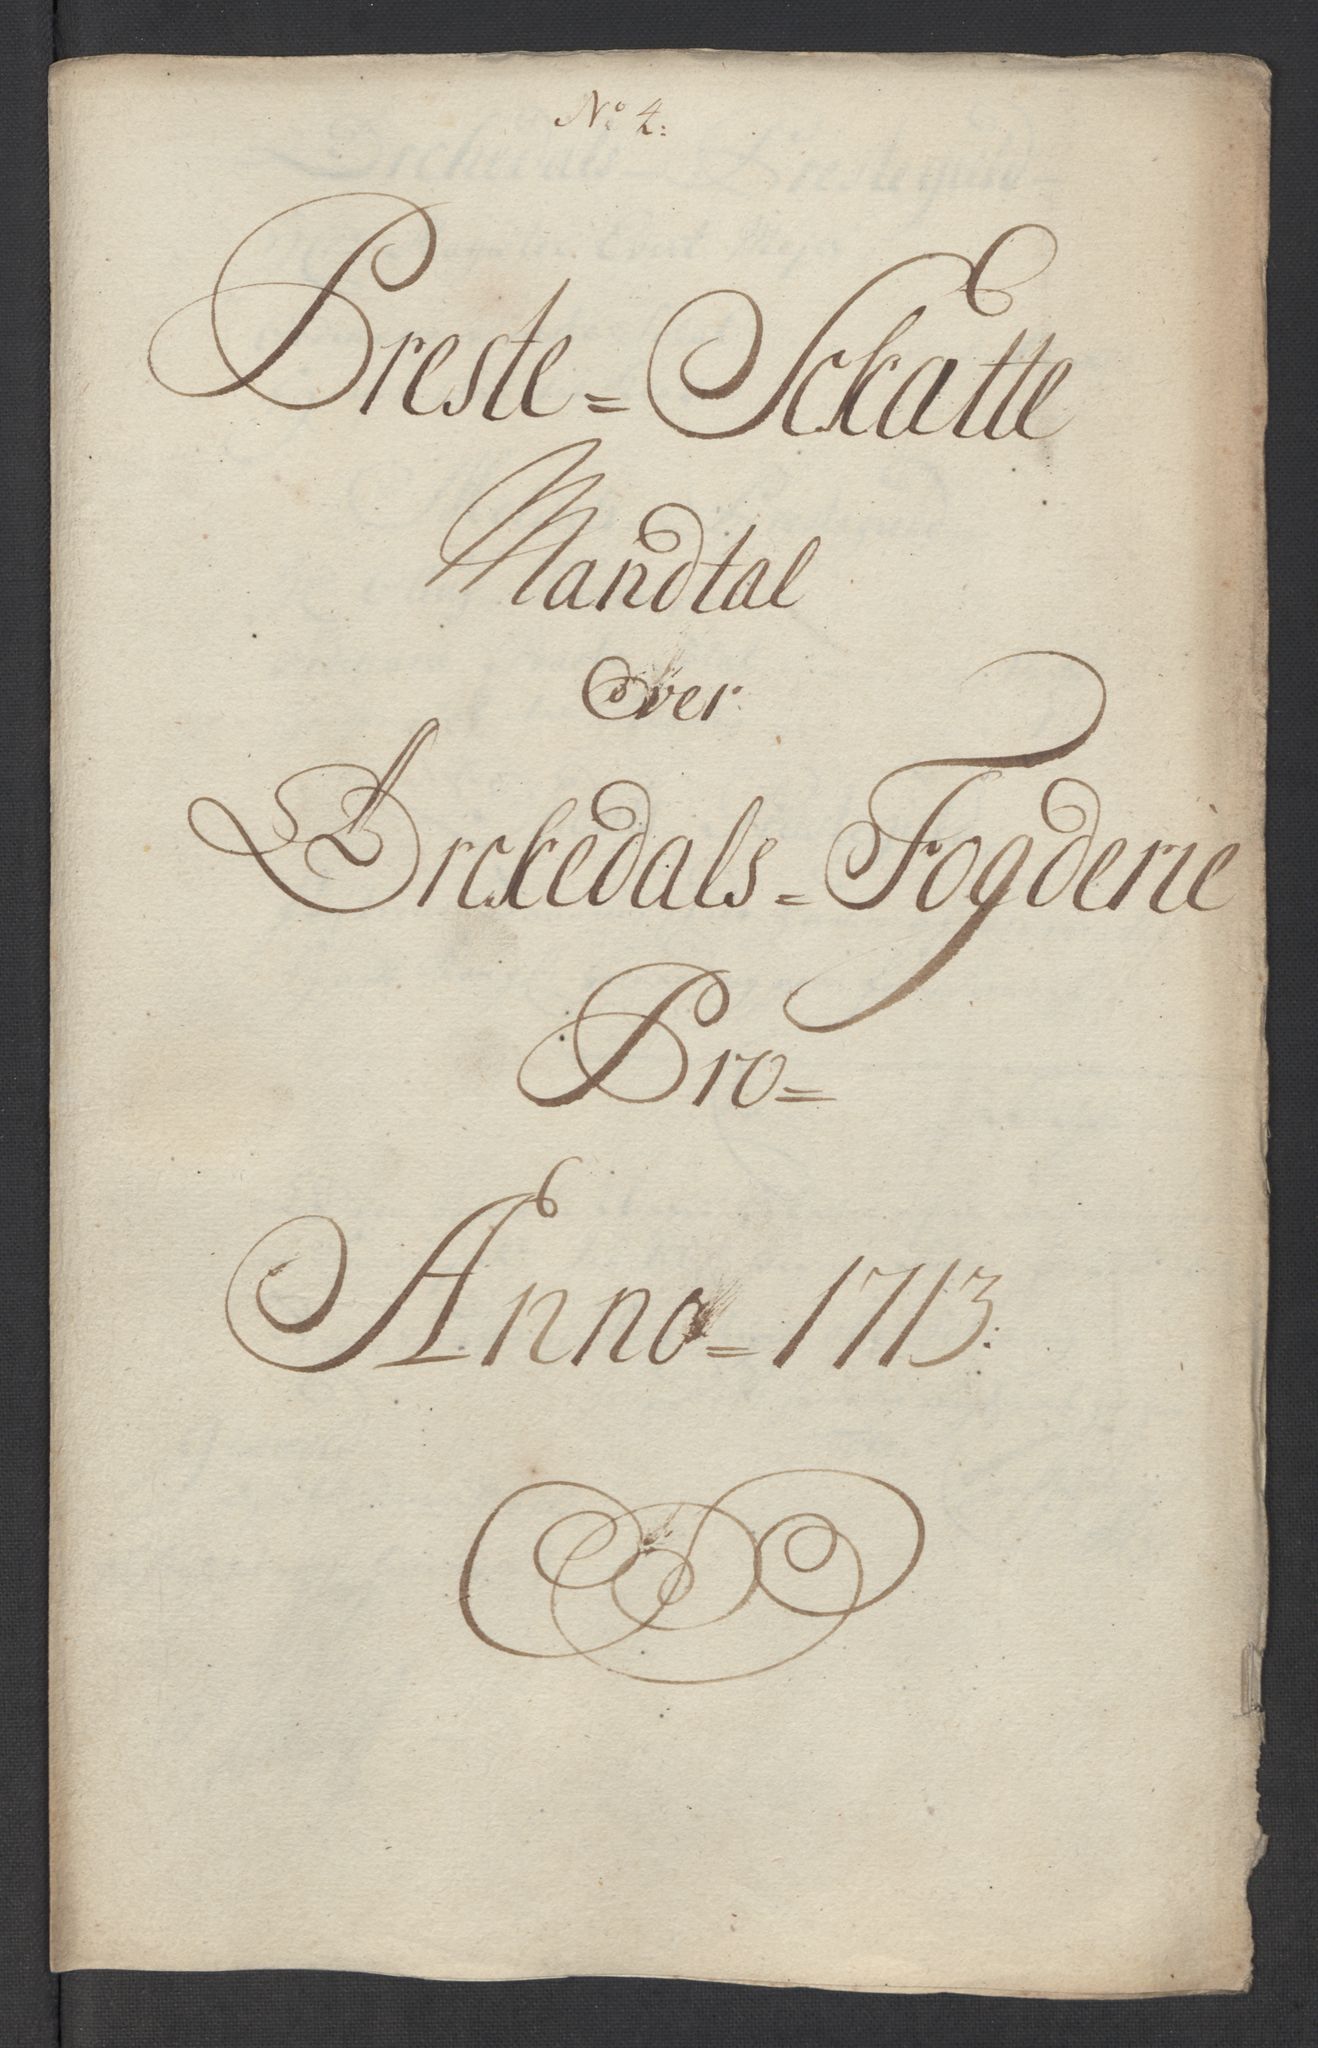 No 4:
Preste = Sckatte
Mandtal
Over
Orckedals = Fogderie
Pro =
Anno = 1713: